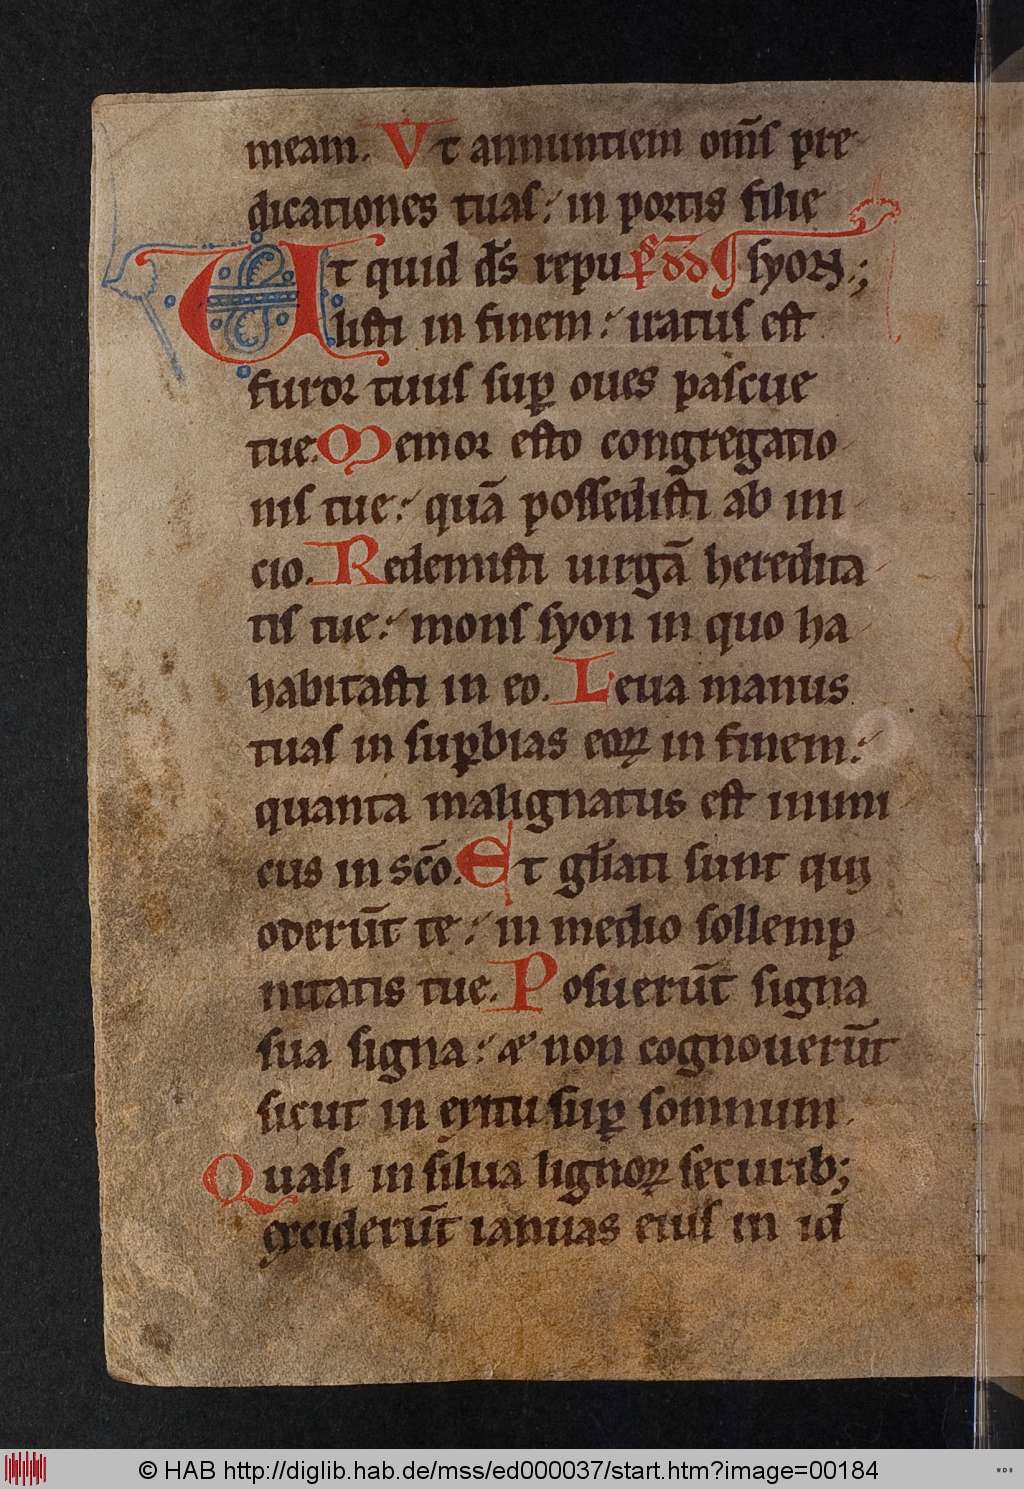 meam. Vt annuntiem om̄s pre
dicationes tuas: in portis filie
syon.;
Ut quid ds̄ repu ps dd
listi in finem: iratus est
furor tuus sup̱ oues pascue
tue. Memor esto congregatio
nis tue: quā possedisti ab ini
cio. Redemisti uirgā heredita
tis tue: mons syon in quo ha
habitasti in eo. Leua manus
tuas in sup̱bias eoꝝ in finem:
quanta malignatus est inimi
cus in sc̄o. Et gl̄iati sunt qui
oderūt te: in medio sollemp
nitatis tue. Posuerūt signa
sua signa: & non cognouerūt
sicut in exitu sup̱ somnum
Quasi in silua lignoꝝ securib;
exciderūt ianuas eius in id
© HAB http://diglib.hab.de/mss/ed000037/start.htm?image=00184